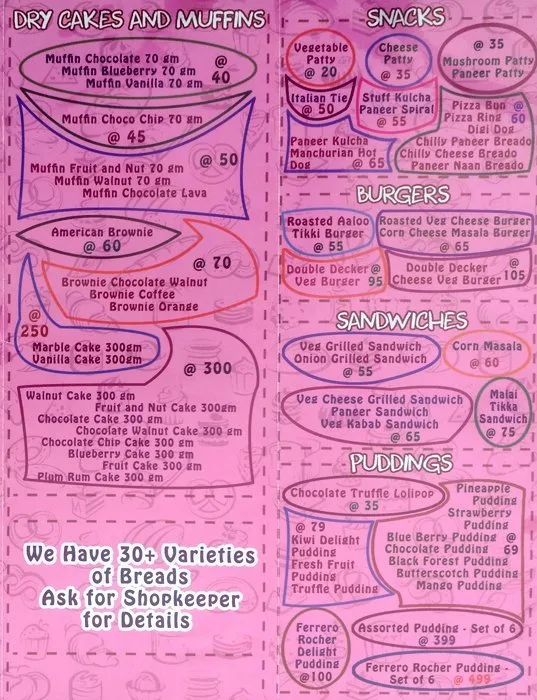 DRY CAKES AND MUFFINS
Muffin Chocolate 70 gm
Muffin Blueberry 70 gm
Muffin Vanilla 70 gm
@
40
Muffin Choco Chip 70 gm
@ 45
@ 50
Muffin Fruit and Nut 70 gm
Muffin Walnut 70 gm
Muffin Chocolate Lava
American Brownie
@ 60
@ 70
Brownie Chocolate Walnut
Brownie Coffee
Brownie Orange
@
250
Marble Cake 300gm
Vanilla Cake 300gm
@ 300
Walnut Cake 300 gm
Fruit and Nut Cake 300gm
Chocolate Cake 300 gm
Chocolate Walnut Cake 300 gm
Chocolate Chip Cake 300 gm
Blueberry Cake 300 gm
Fruit Cake 300 gm
Plum Rum Cake 300 gm
We Have 30+ Varieties
of Breads
Ask for Shopkeeper
for Details
SNACKS
Vegetable
Patty
@ 20
Cheese
Patty
@ 35
@ 35
Mushroom Patty
Paneer Patty
Italian Tie
@ 50
Stuff Kulcha
Paneer Spiral
@ 55
Paneer Kulcha
Manchurian Hot
Dog @ 65
Pizza Bun @
Pizza Ring 60
Digi Dog
Chilly Paneer Breado
Chilly Cheese Breado
Paneer Naan Breado
BURGERS
Roasted Aaloo
Tikki Burger
@ 55
Roasted Veg Cheese Burger
Corn Cheese Masala Burger
@ 65
Double Decker @
Veg Burger 95
Double Decker @
Cheese Veg Burger 105
SANDWICHES
Veg Grilled Sandwich
Onion Grilled Sandwich
@ 55
Corn Masala
@ 60
Veg Cheese Grilled Sandwich
Paneer Sandwich
Veg Kabab Sandwich
@ 65
Malai
Tikka
Sandwich
@ 75
PUDDINGS
Chocolate Truffle Lolipop
@ 35
@ 79
Kiwi Delight
Pudding
Fresh Fruit
Pudding
Truffle Pudding
Pineapple
Pudding
Strawberry
Pudding
Blue Berry Pudding @
Chocolate Pudding 69
Black Forest Pudding
Butterscotch Pudding
Mango Pudding
Ferrero
Rocher
Delight
Pudding
@100
Assorted Pudding - Set of 6
@ 399
Ferrero Rocher Pudding -
Set of 6 @ 499